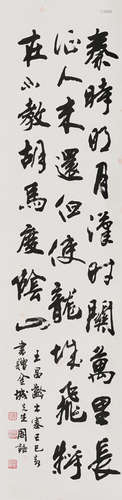 秦時明月漢時關萬里長
征人未還但使龍城飛將
在不教胡馬度陰山
王昌齡出塞己巳
書贈金城先生周